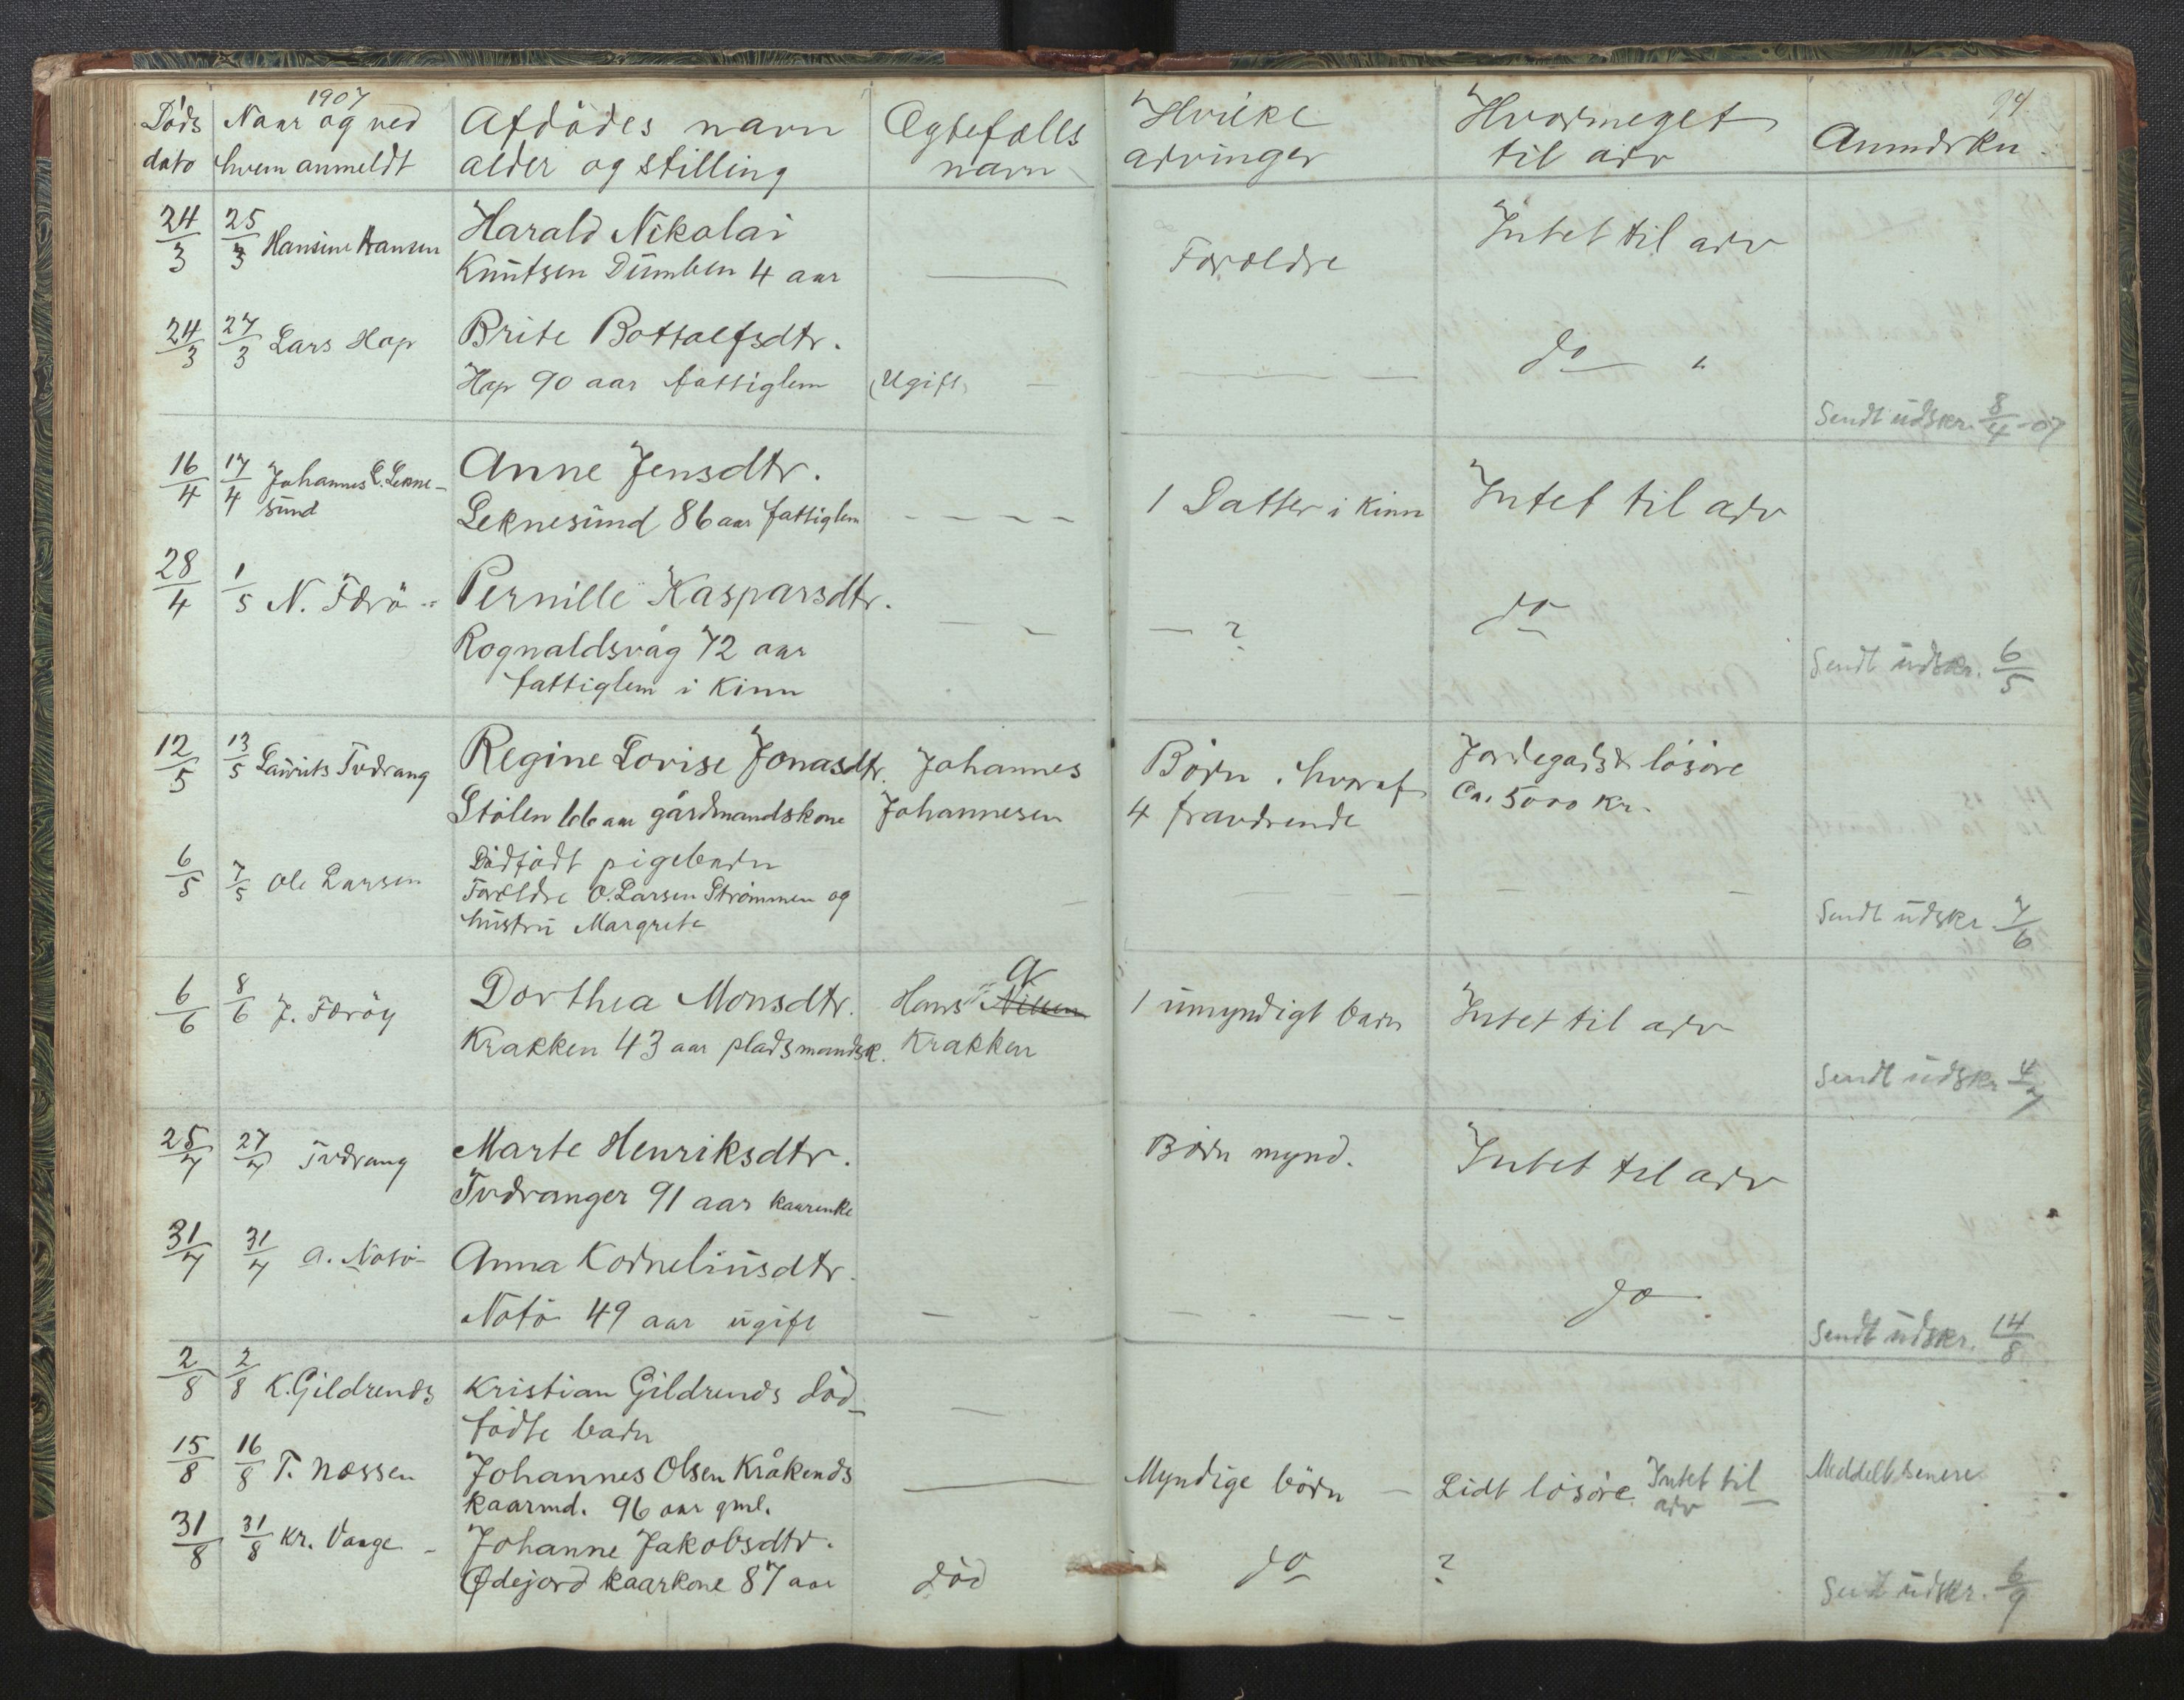 1907
Døds dato
Naar og ved hvem anmeldt
Afdødes navn alder og stilling
Ægtefælls navn
Hvilke arvinger
Hvormeget til arv
Anmærkn.
24/3 25/3 Hansine Hansen Harald Nikolai Forældre Intet til arv
Knutsen Dumben 4 aar
24/3 27/3 Lars Hop Brite Bottolfsdtr. do "
Hop 90 aar fattiglem Ugift
Sendt udskr. 8/4-07
16/4 17/4 Johannes L. Lekne- Anne Jensdtr.
sund Leknesund 86 aar fattiglem 1 Datter i Kinn Intet til arv
28/4 1/5 N. Færø Pernille Kasparsdtr. ? do
Rognaldsvåg 72 aar
fattiglem i Kinn
Sendt udskr. 6/5
12/5 13/5 Laurits Tværang Regine Lovise Jonasdtr. Johannes Børn, hvoraf Jordegods & løsøre
Stølen 66 aar gårdmandskone Johannesen 4 fraværende Ca. 5000 Kr.
6/5 7/5 Ole Larsen Dødfødt pigebarn
Forældre O. Larsen Strømmen og
hustru Margrete
Sendt udskr. 7/6
6/6 8/6 J. Færøy Dorthea Monsdtr. Hans A Nilsen 1 umyndigt barn Intet til arv
Krakken 43 aar pladsmandsk. Krakken
Sendt udskr 4/7
25/7 27/7 Tværang Marte Henriksdtr. Børn mynd. Intet til arv
Tværanger 91 aar kaarenke
31/7 31/7 A. Nøtø Anna Kornelinsdtr. do
Nøtø 49 aar ugift
Sendt udskr. 14/8
2/8 2/8 K. Gildrenæs Kristian Gildrenæs død-
fødte barn
15/8 16/8 T. Næssen Johannes Olsen Kråkenæs Myndige børn - Lidt løsøre. Intet til arv Meddelt senere.
kaarmd. 96 aar gml.
31/8 31/8 Kr. Vaage Johanne Jakobsdtr. do ?
Ødejord kaarkone 87 aar død
Sendt udskr. 6/9